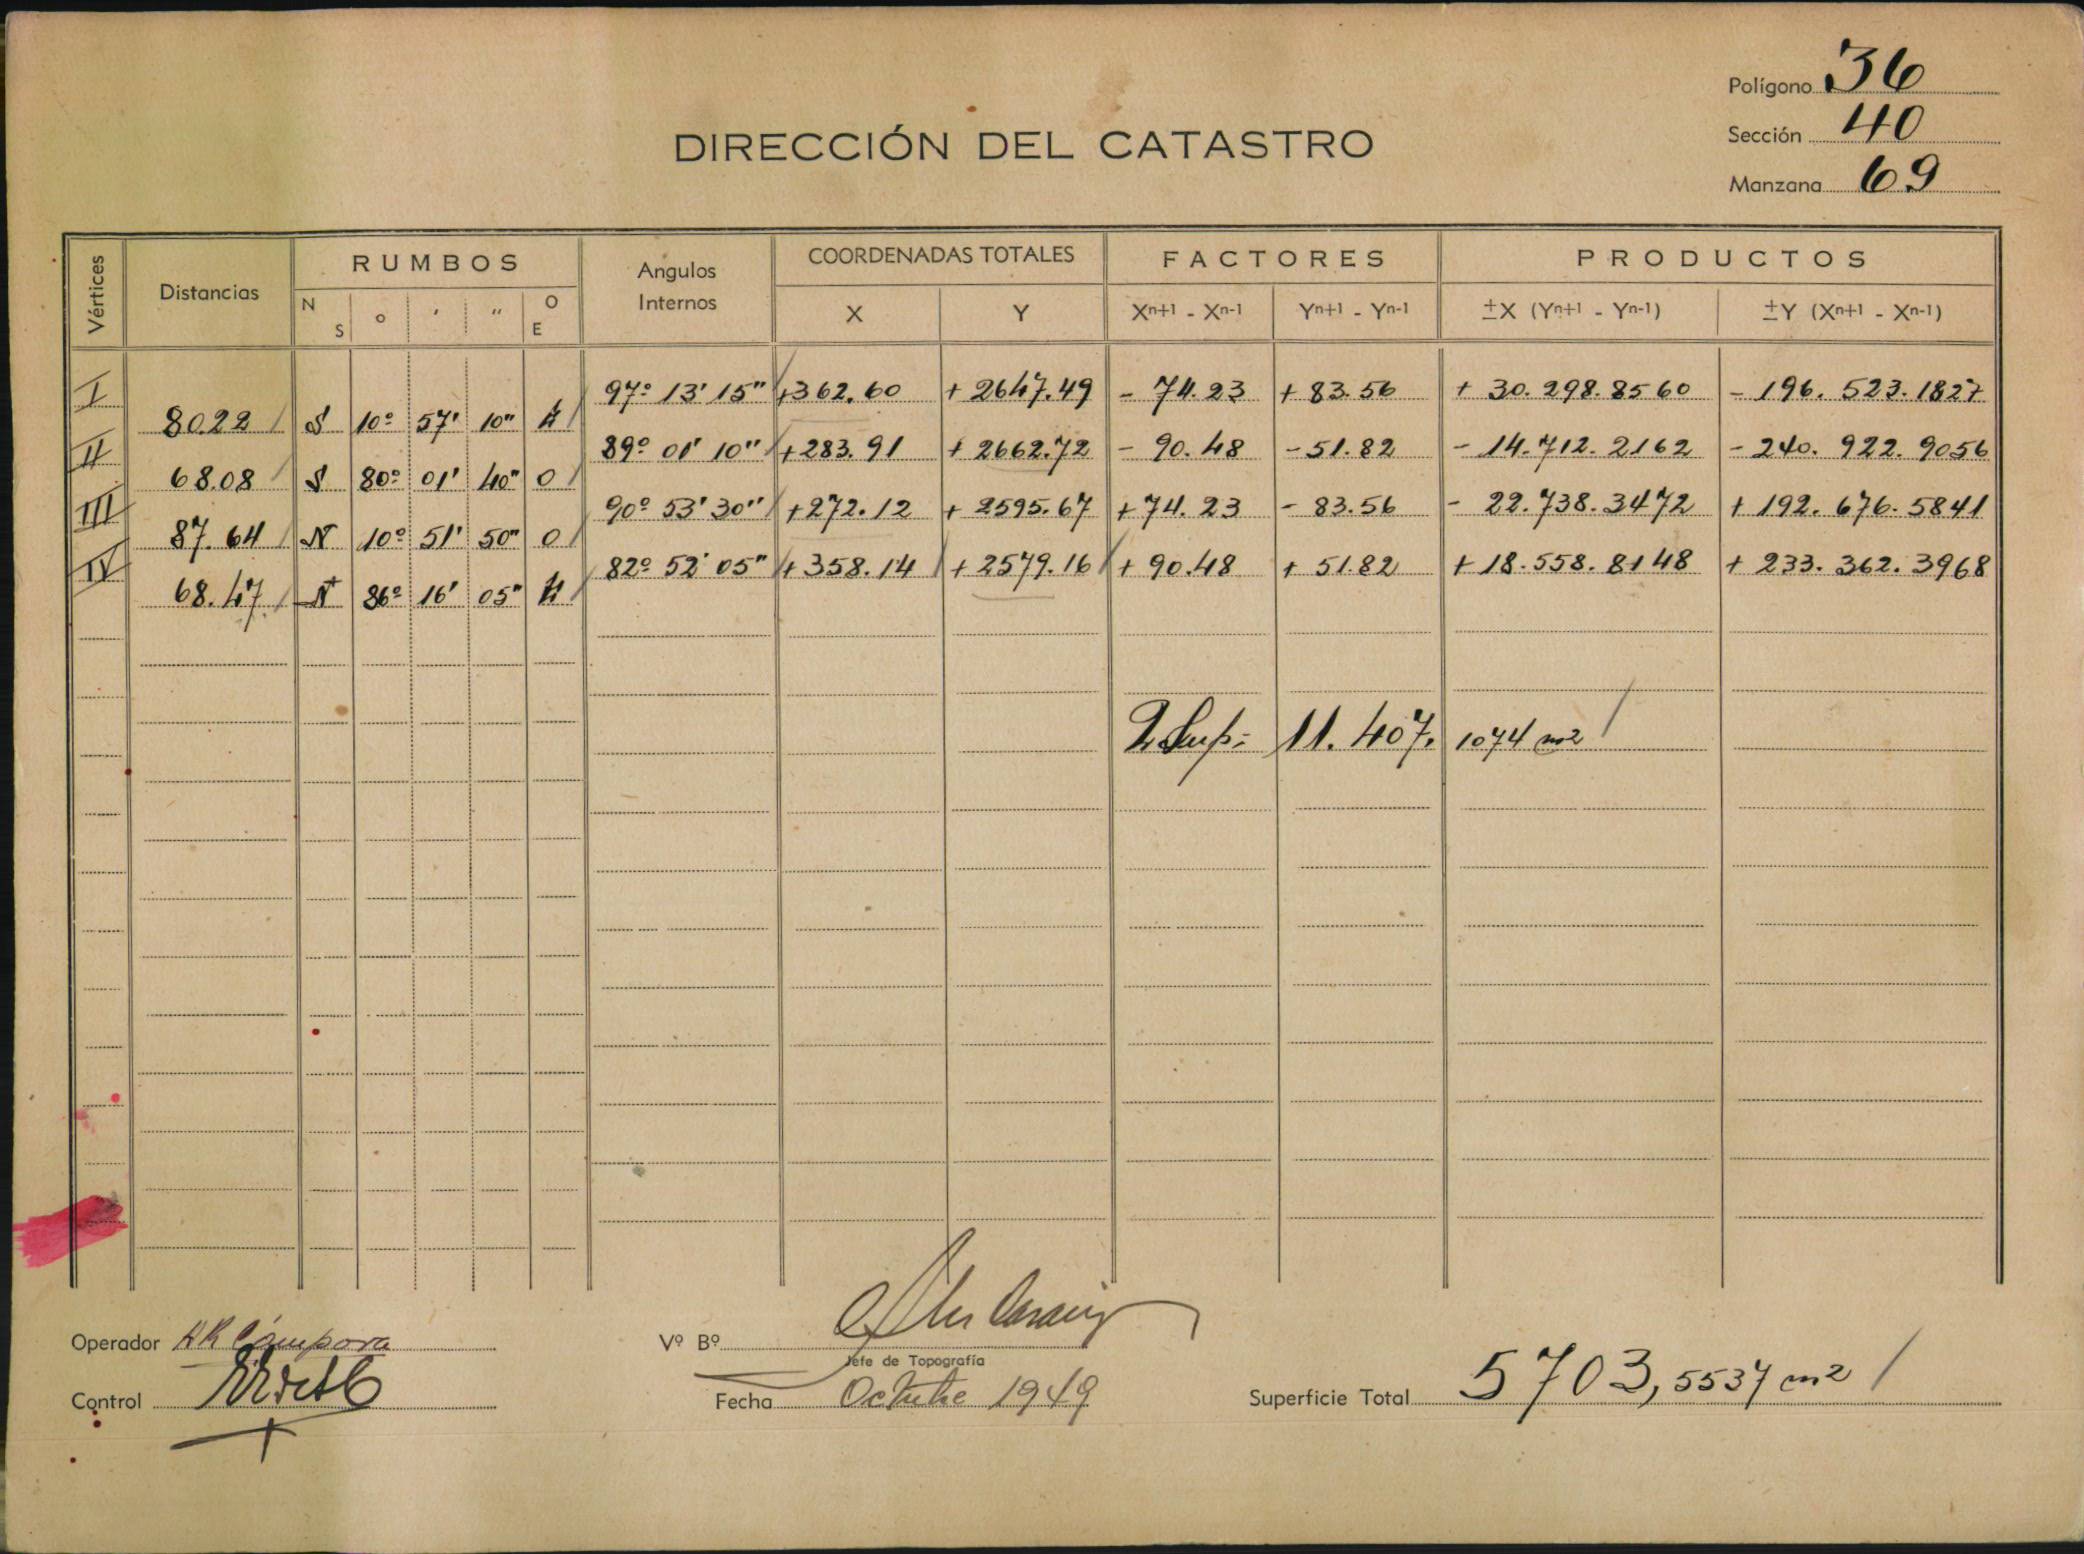 Polígono 36
DIRECCIÓN DEL CATASTRO
Sección 40
Manzana 69
Vértices Distancias RUMBOS Angulos Internos COORDENADAS TOTALES FACTORES PRODUCTOS
N S o ′ ″ O E X Y Xⁿ⁺¹ - Xⁿ⁻¹ Yⁿ⁺¹ - Yⁿ⁻¹ ±X (Yⁿ⁺¹ - Yⁿ⁻¹) ±Y (Xⁿ⁺¹ - Xⁿ⁻¹)
I 97º 13' 15" +362.60 + 2647.49 - 74.23 + 83.56 + 30.298.8560 - 196.523.1827
80.22 S 10º 57' 10"
II 89º 01' 10" +283.91 + 2662.72 - 90.48 - 51.82 - 14.712.2162 - 240.922.9056
68.08 S 80º 01' 40" O
III 90º 53' 30" +272.12 + 2595.67 + 74.23 - 83.56 - 22.738.3472 + 192.676.5841
87.64 N 10º 51' 50" O
IV 82º 52' 05" + 358.14 + 2579.16 + 90.48 + 51.82 + 18.558.8148 + 233.362.3968
68.47 N 86º 16' 05"
2 Sup: 11.407.1074 m2
Operador Cámpora
Vº Bº
Jefe de Topografía
Control
Fecha Octubre 1949
Superficie Total 5703,5537 m2